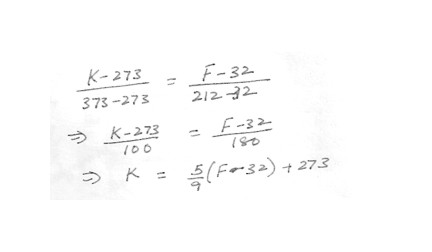 K-273 / 373-273 = F-32 / 212-32
⇒ K-273 / 100 = F-32 / 180
⇒ K = 5/9 (F-32) + 273